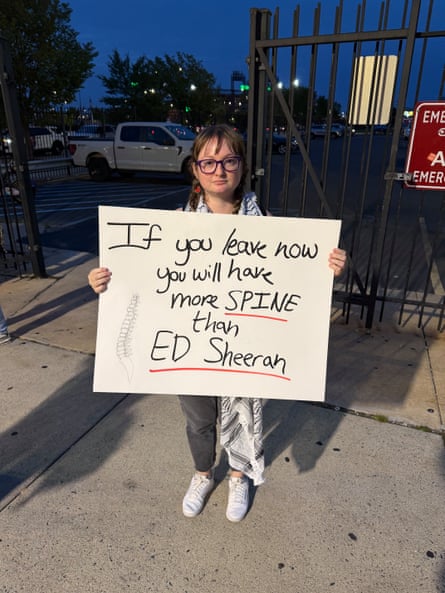 If you leave now
you will have
more SPINE
than
ED Sheeran
EME
A
EMERG